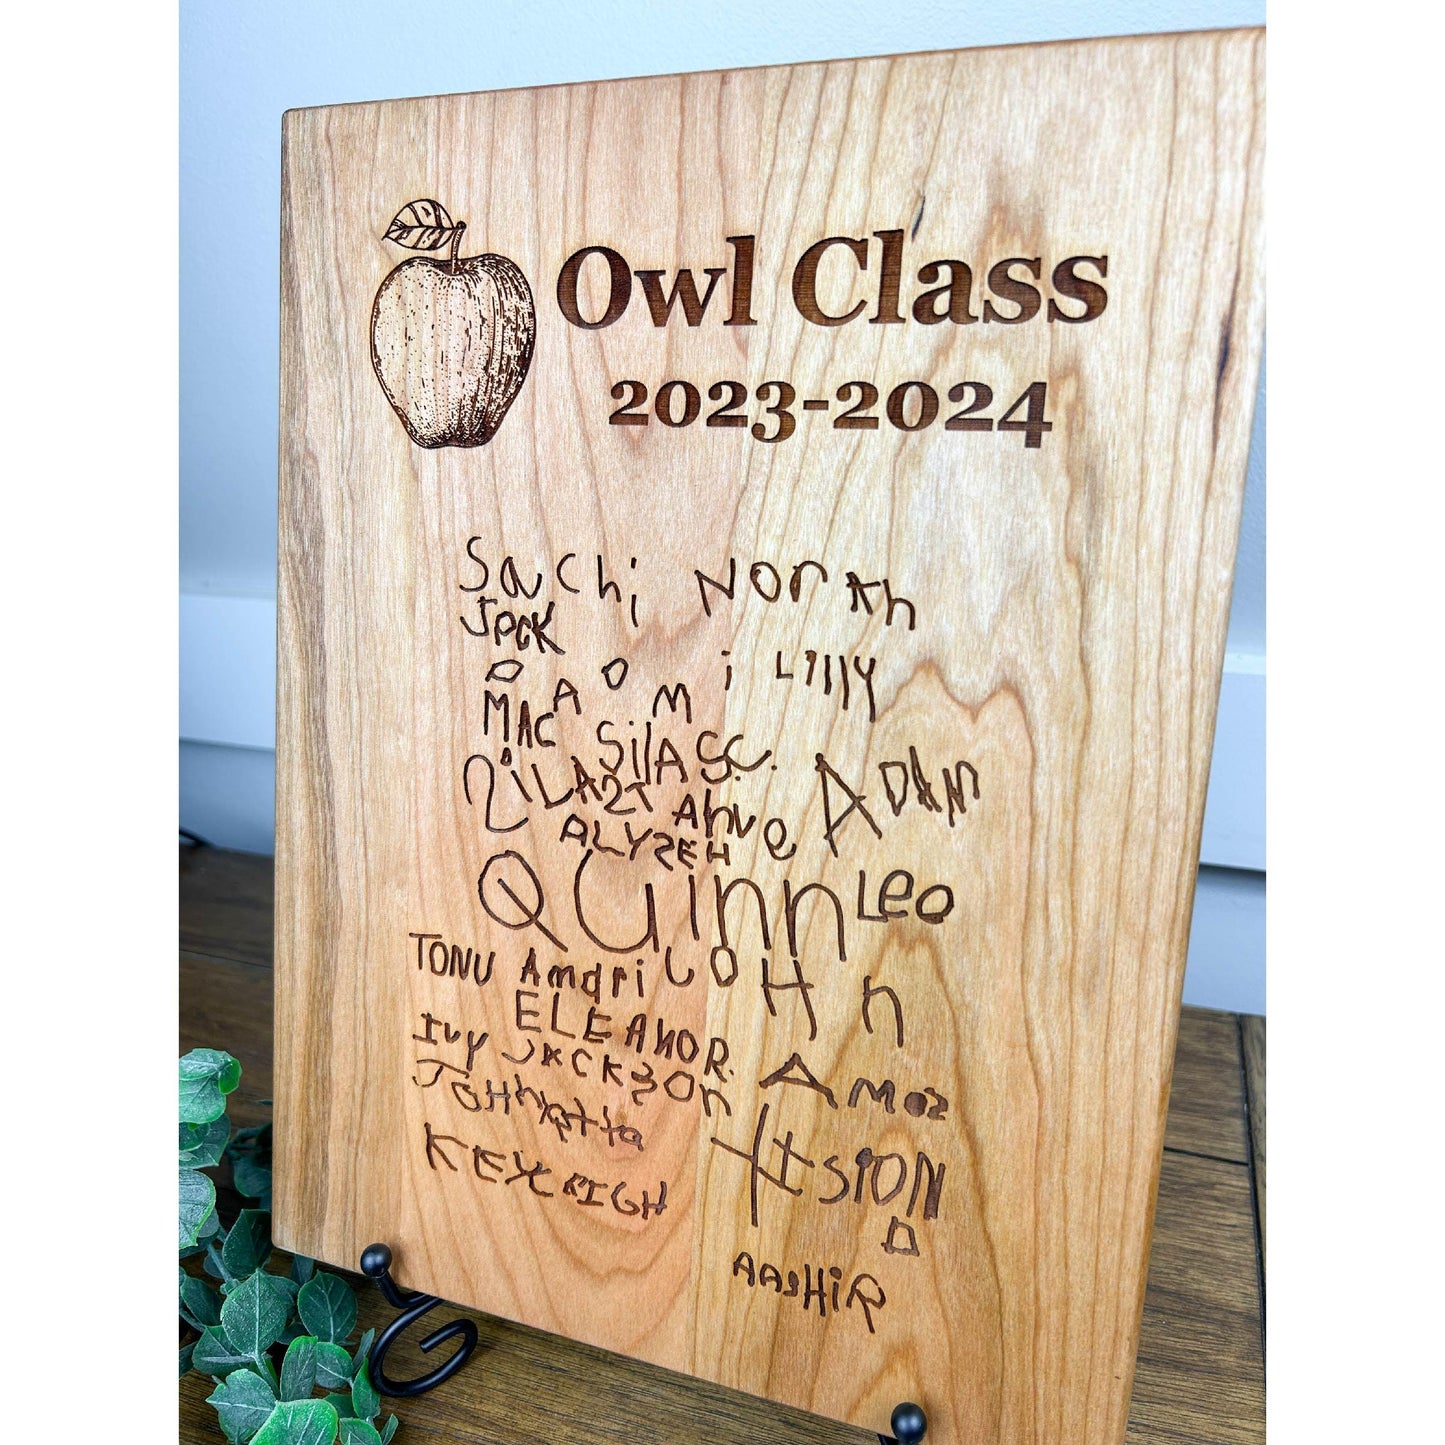 Owl Class
2023-2024
Sachi North
Jack
Naomi Lilly
MAC SilAS.C.
Ahve ADAM
ALYZEH
QUinn Leo
TONU Amari JOHn
ELEANOR.
Ivy JACKSOn AMOS
KEYLEIGH
AASHiR